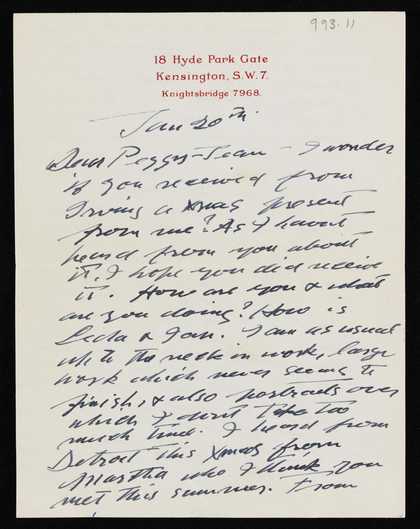 993.11
18 Hyde Park Gate
Kensington, S.W.7.
Knightsbridge 7968.
Jan 20th
Dear Peggy-Jean - I wonder
if you received from
Irving a xmas present
from me? As I havent
heard from you about
it, I hope you did receive
it. How are you & what
are you doing? How is
Leda & Ian. I am as usual
up to the neck in work, large
work which never seems to
finish, & also portraits over
which I dont take too
much time. I heard from
Detroit this Xmas from
Martha who I think you
met this summer. From